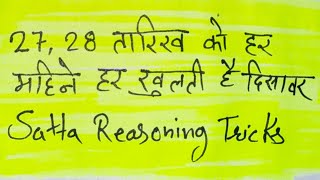 27, 28 तारिख को हर
महिने हर खुलती है दिसावर
Satta Reasoning Tricks